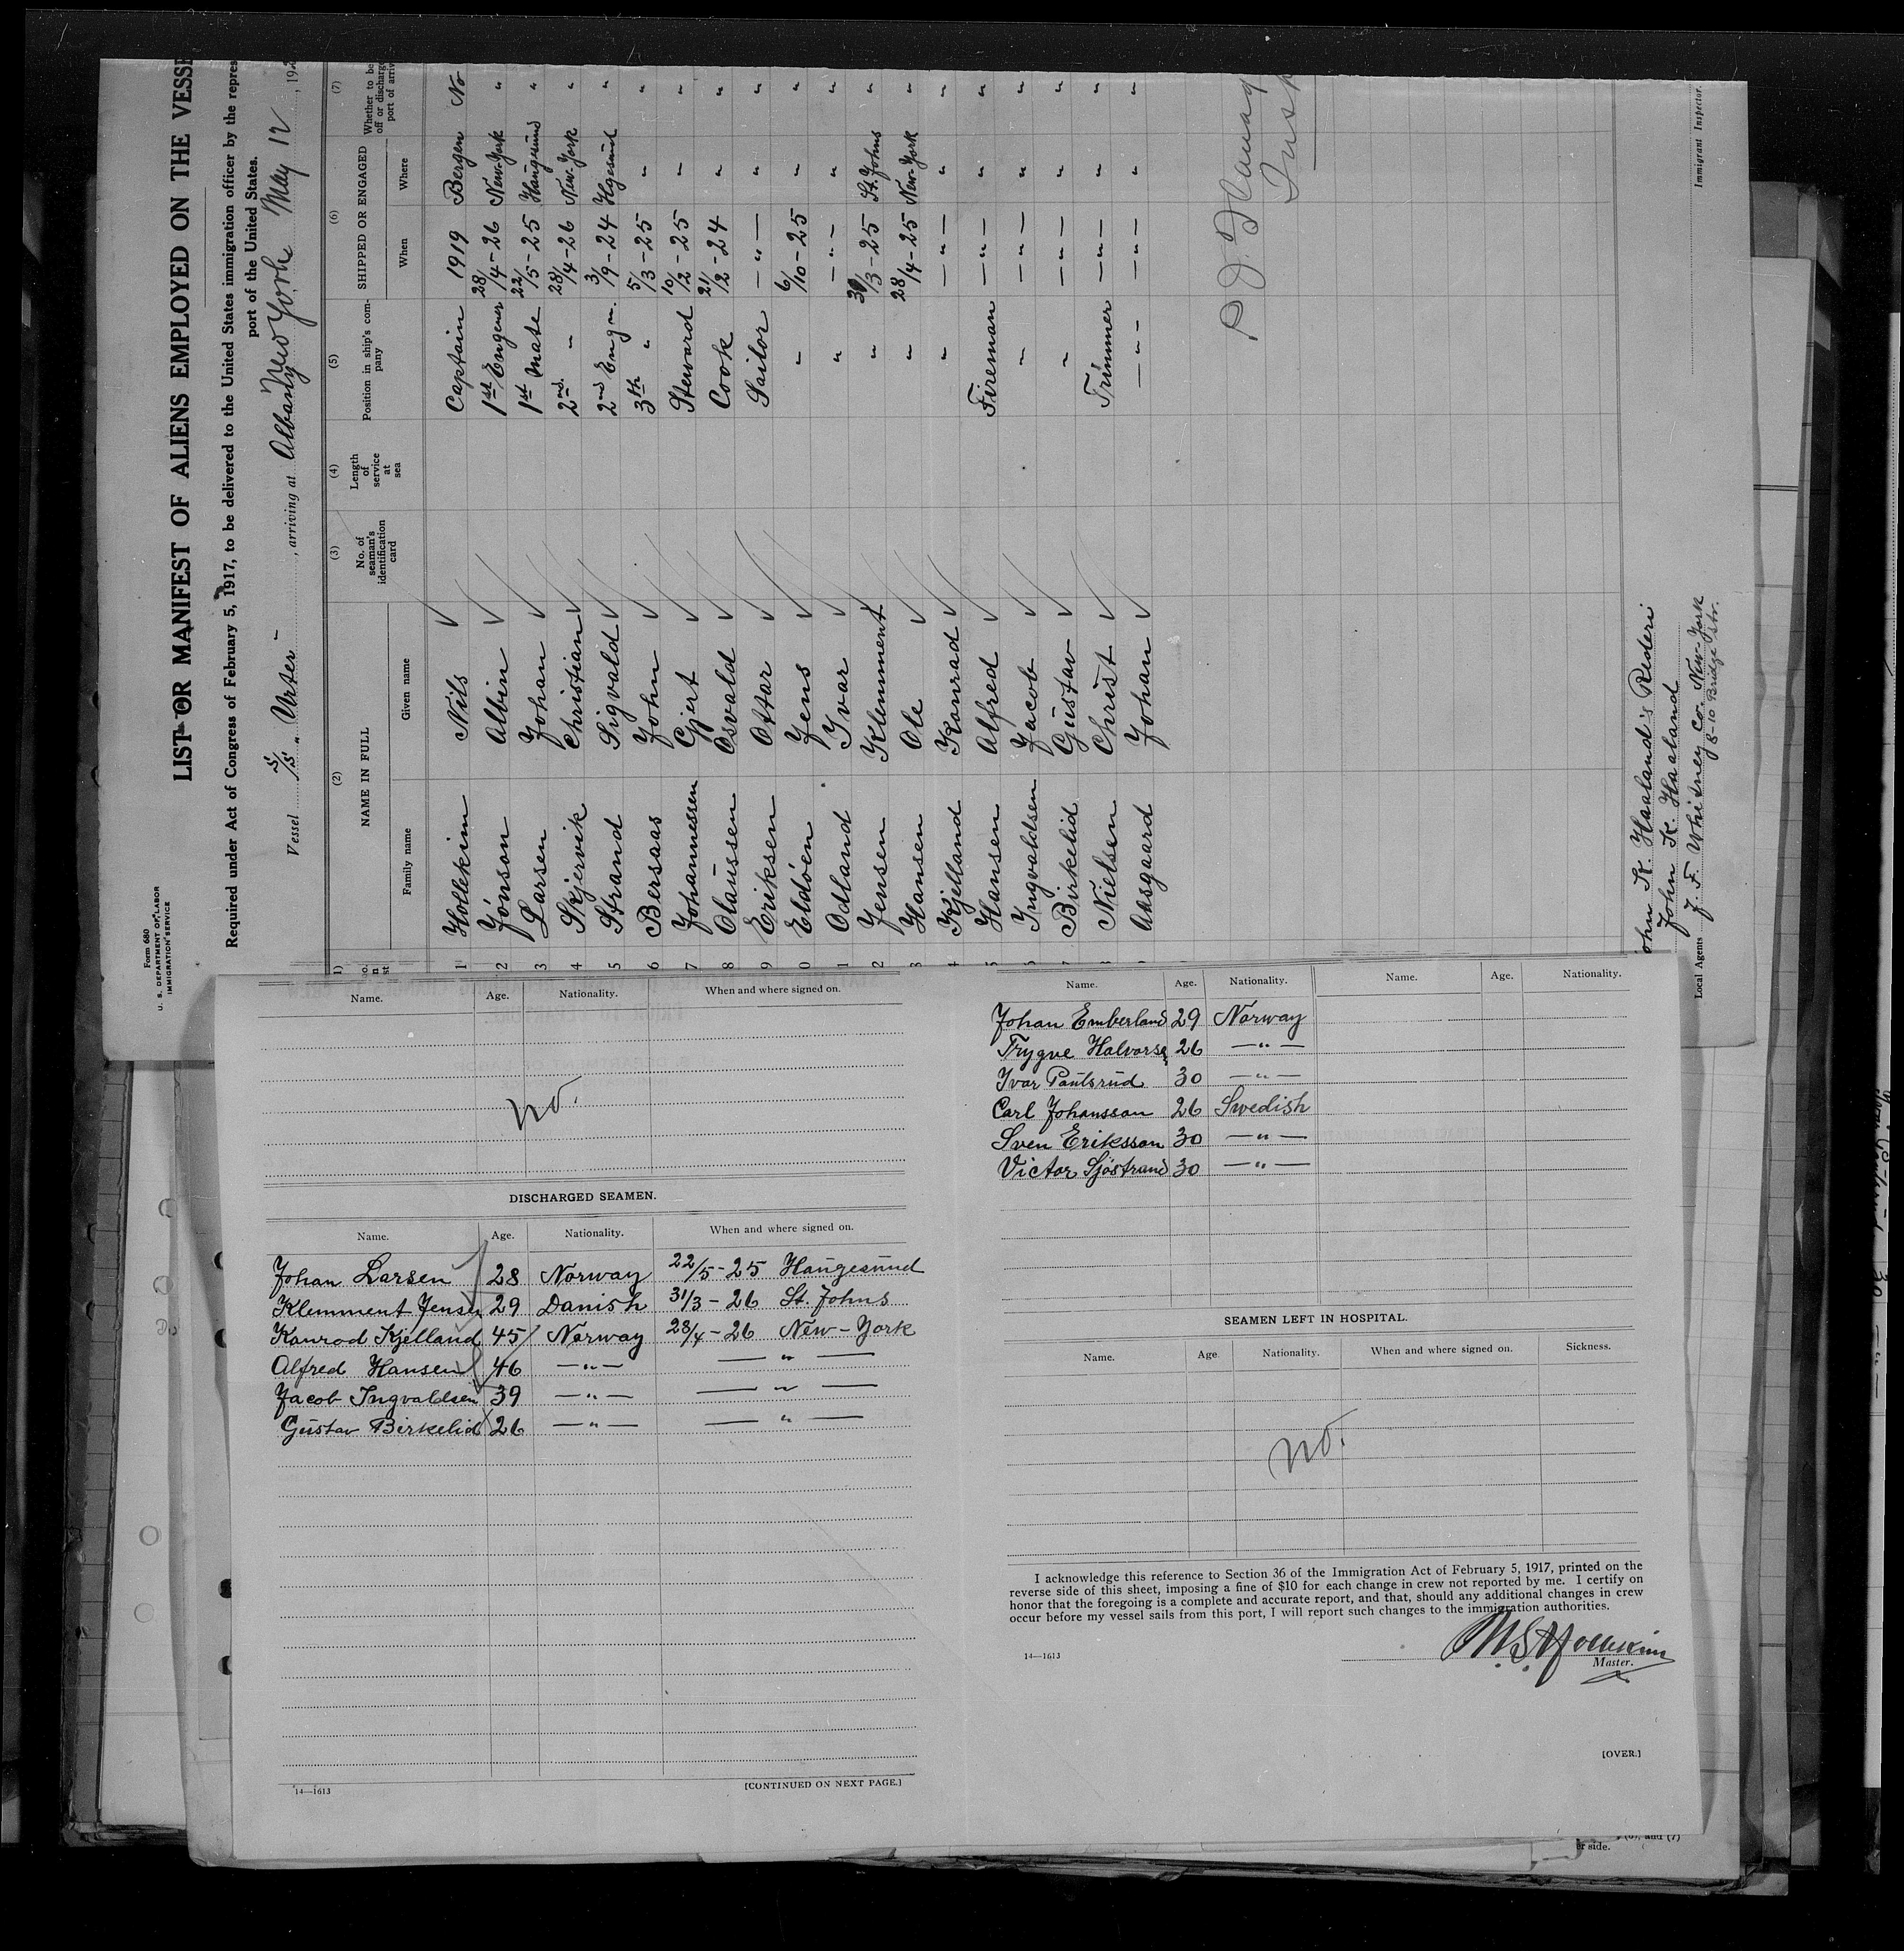 Form 680
U. S. DEPARTMENT OF LABOR
IMMIGRATION SERVICE
LIST OR MANIFEST OF ALIENS EMPLOYED ON THE VESSE
Required under Act of Congress of February 5, 1917, to be delivered to the United States immigration officer by the repres
port of the United States.
Vessel S/S "Urter" , arriving at Albany New York May 12 , 192
(2) (3) (4) (5) (6) (7)
NAME IN FULL No. of seaman's identification card Length of service at sea Position in ship's company SHIPPED OR ENGAGED Whether to be off or discharge port of arriv
Family name Given name When Where
1 Hollekim Nils Captain 1919 Bergen No
2 Jönson Albin 1st Engener 28/4-26 New-York "
3 Larsen Johan 1st Mate 22/5-25 Haugesund "
4 Skjervik Christian 2nd. " 28/4-26 New-York "
5 Strand Sigvald 2nd Engn. 3/9-24 Hgesund "
6 Bersaas John 3th " 5/3-25 " "
7 Johannessen Gjert Steward 10/2-25 " "
8 Olaussen Osvald Cook 21/2-24 " "
9 Eriksen Ottar Sailor — " — " "
0 Eldöen Jens " 6/10-25 " "
1 Odland Ivar " — " — " "
2 Jensen Klemment " 30/3-25 St. Johns "
3 Hansen Ole " 28/4-25 New-York "
4 Kjelland Konrad " — " — " "
5 Hansen Alfred Fireman — " — " "
6 Ingvaldsen Jacob " — " — " "
7 Birkelid Gustav " — " — " "
8 Nielsen Christ Trimmer — " — " "
Aksgaard Johan — " — — " — " "
John K. Haaland's Rederi
John K. Haaland
Local Agents J. F. Whitney Co. New-York
8-10 Bridge str.
Immigrant Inspector.
Name. Age. Nationality. When and where signed on.
no.
DISCHARGED SEAMEN.
Name. Age. Nationality. When and where signed on.
Johan Larsen 28 Norway 22/5-25 Haugesund
Klemment Jensen 29 Danish 31/3-26 St. Johns
Konrod Kjelland 45 Norway 28/4-26 New-York
Alfred Hansen 46 — " — — " —
Jacob Ingvaldsen 39 — " — — " —
Gustav Birkelid 26 — " — — " —
14—1613 [CONTINUED ON NEXT PAGE.]
Name. Age. Nationality. Name. Age. Nationality.
Johan Emberland 29 Norway
Trygve Halvorse 26 — " —
Ivar Paulsrud 30 — " —
Carl Johansson 26 Swedish
Sven Eriksson 30 — " —
Victor Sjöstrand 30 — " —
SEAMEN LEFT IN HOSPITAL.
Name. Age Nationality. When and where signed on. Sickness.
no.
I acknowledge this reference to Section 36 of the Immigration Act of February 5, 1917, printed on the
reverse side of this sheet, imposing a fine of $10 for each change in crew not reported by me. I certify on
honor that the foregoing is a complete and accurate report, and that, should any additional changes in crew
occur before my vessel sails from this port, I will report such changes to the immigration authorities.
N. S. Hollekim
14—1613 Master.
[OVER.]
er side.